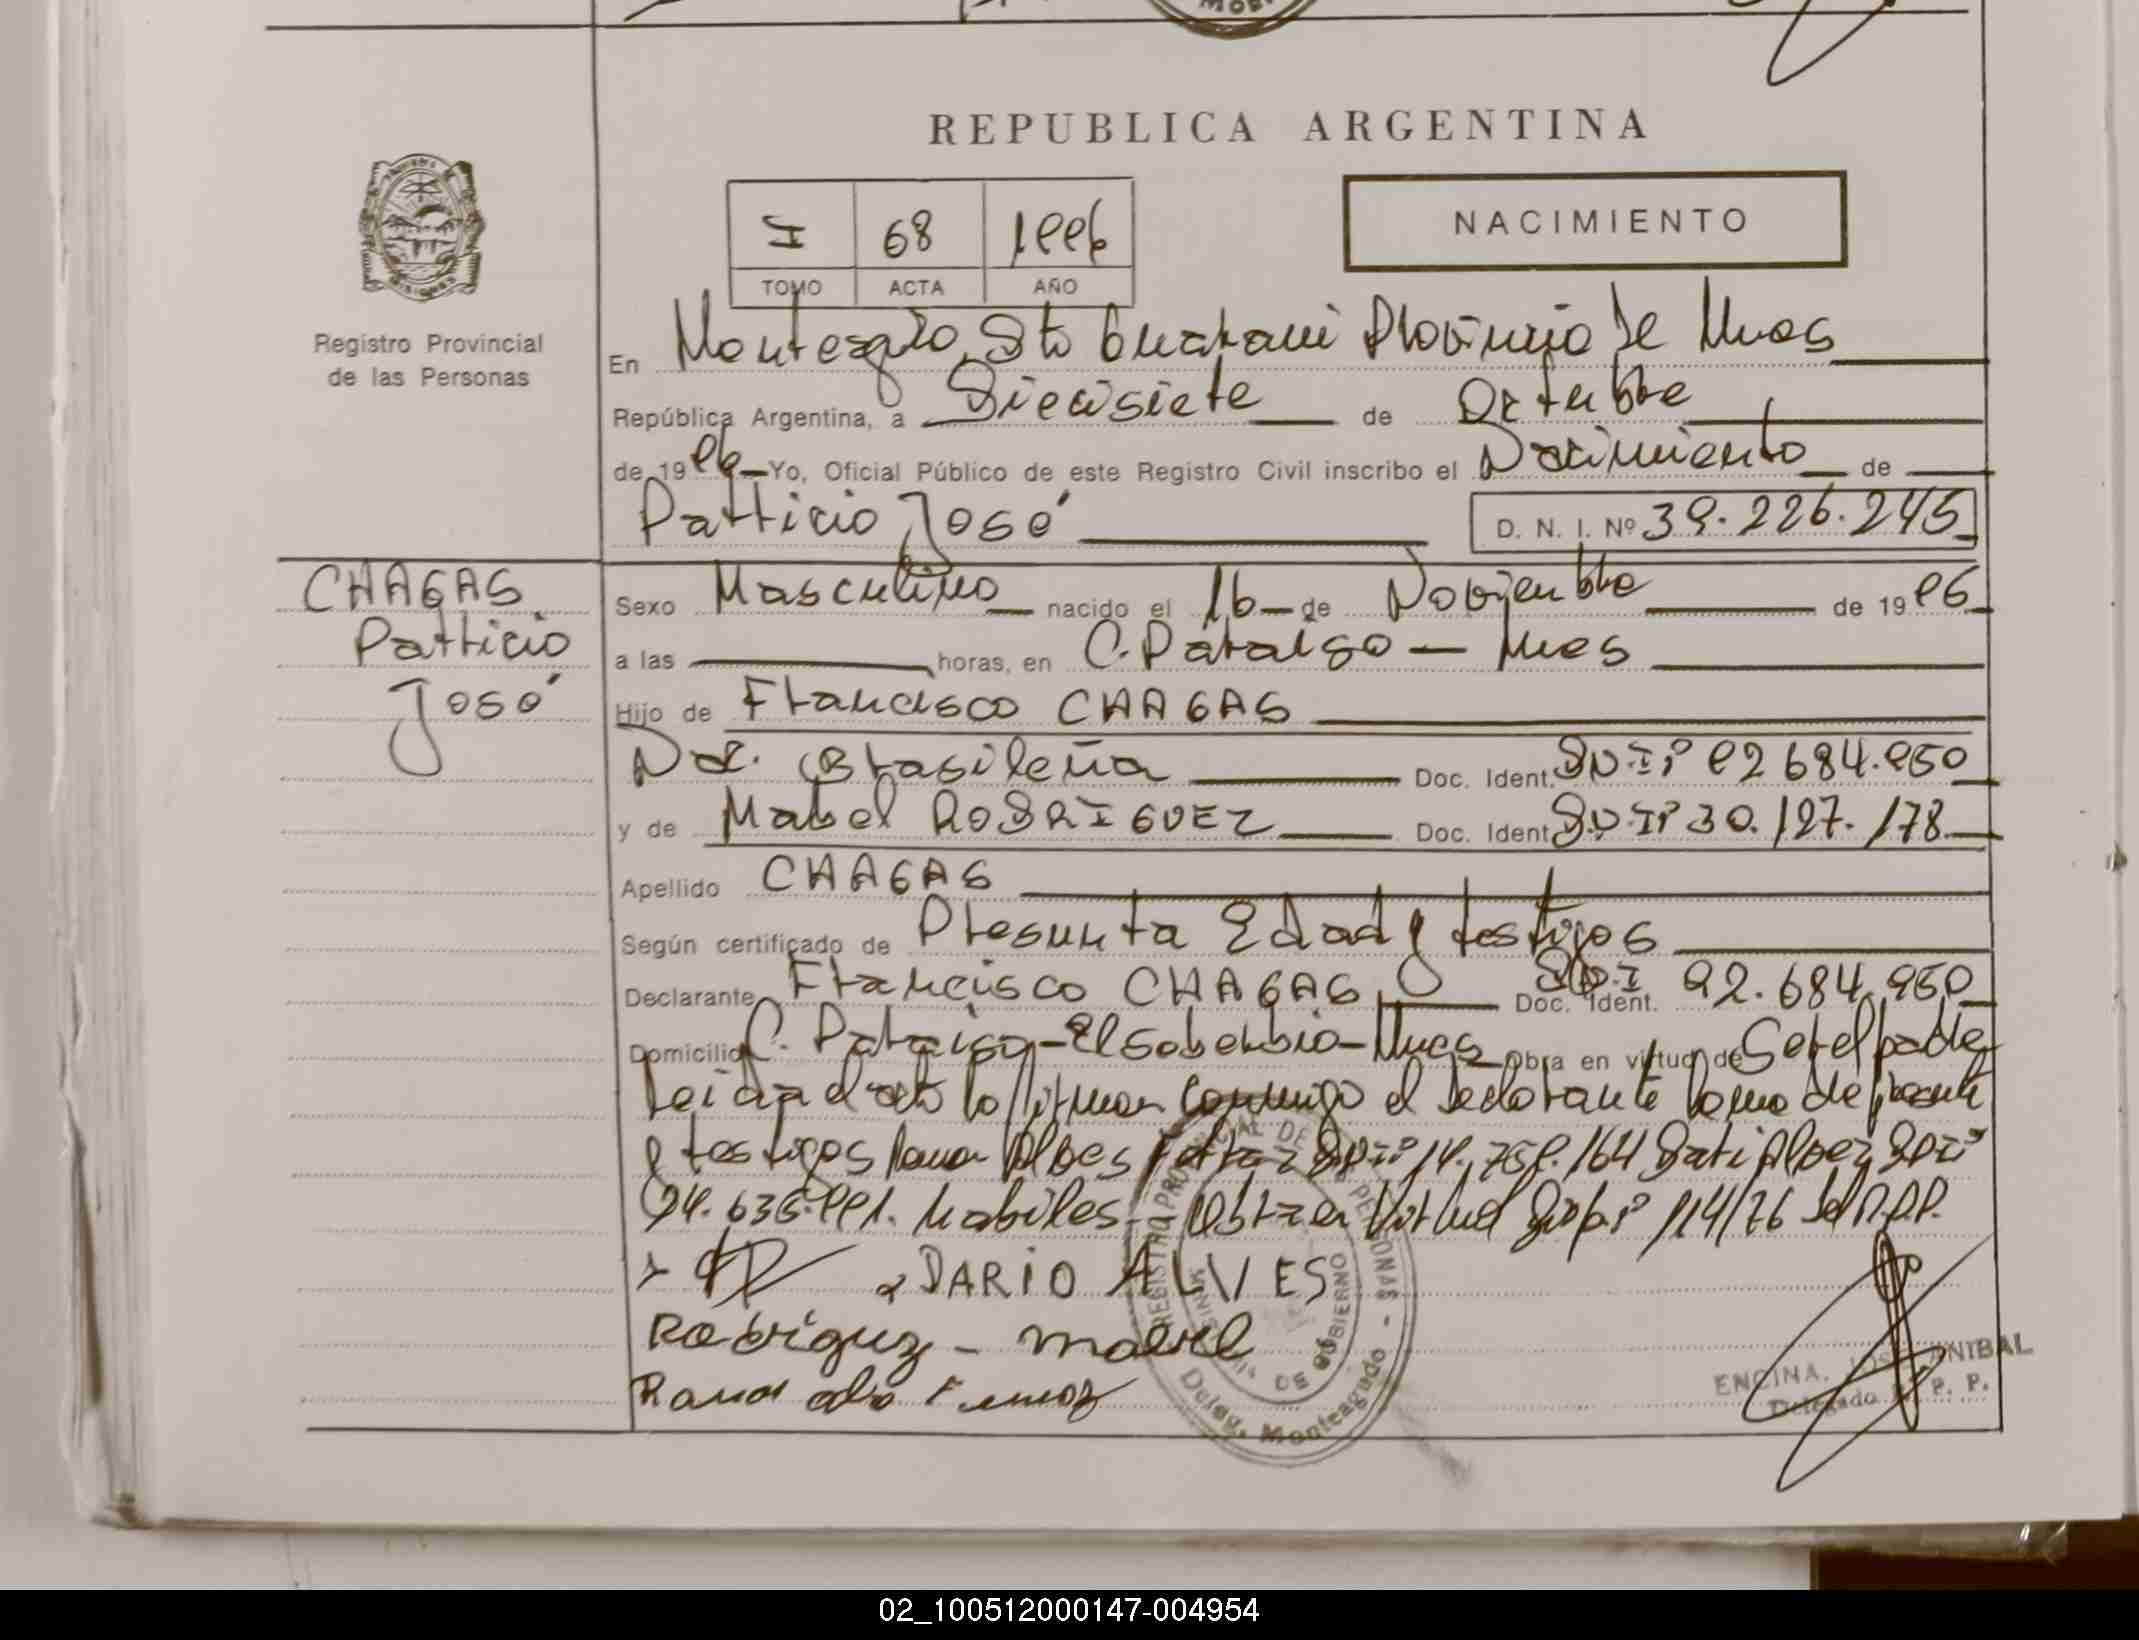 REPUBLICA ARGENTINA
I 68 1996
TOMO ACTA AÑO
NACIMIENTO
Registro Provincial
de las Personas
En Monteagdo, Dto Guarani Provincia de Mnes
República Argentina, a Diecisiete de Octubre
de 19 96 Yo, Oficial Público de este Registro Civil inscribo el Nacimiento de
Patricio José D. N. I. Nº 39.226.245
CHAGAS
Patricio
José
Sexo Masculino nacido el 16 de Noviembre de 19 96
a las horas, en C. Paraiso - Mnes
Hijo de Francisco CHAGAS
Nac. Brasileña Doc. Ident. DNIº 92 684.950
y de Mabel RODRIGUEZ Doc. Ident. DNIº 30.197.178
Apellido CHAGAS
Según certificado de Presunta Edad y testigos
Declarante Francisco CHAGAS Doc. Ident. DNI 92.684.950
Domicilio C. Paraiso - El Soberbio - Mnes Obra en virtud de Ser el padre
Leida el acta la firman conmigo el declarante
y testigos
habiles 114/76 del R.P.P.
DARIO ALVES
Rodriguz - mabel
REGISTRO PROVINCIAL DE LAS PERSONAS
MINISTERIO DE GOBIERNO
Deleg. Monteagudo
ENCINA, JOSE ANIBAL
Delegado R. P. P.
02_100512000147-004954